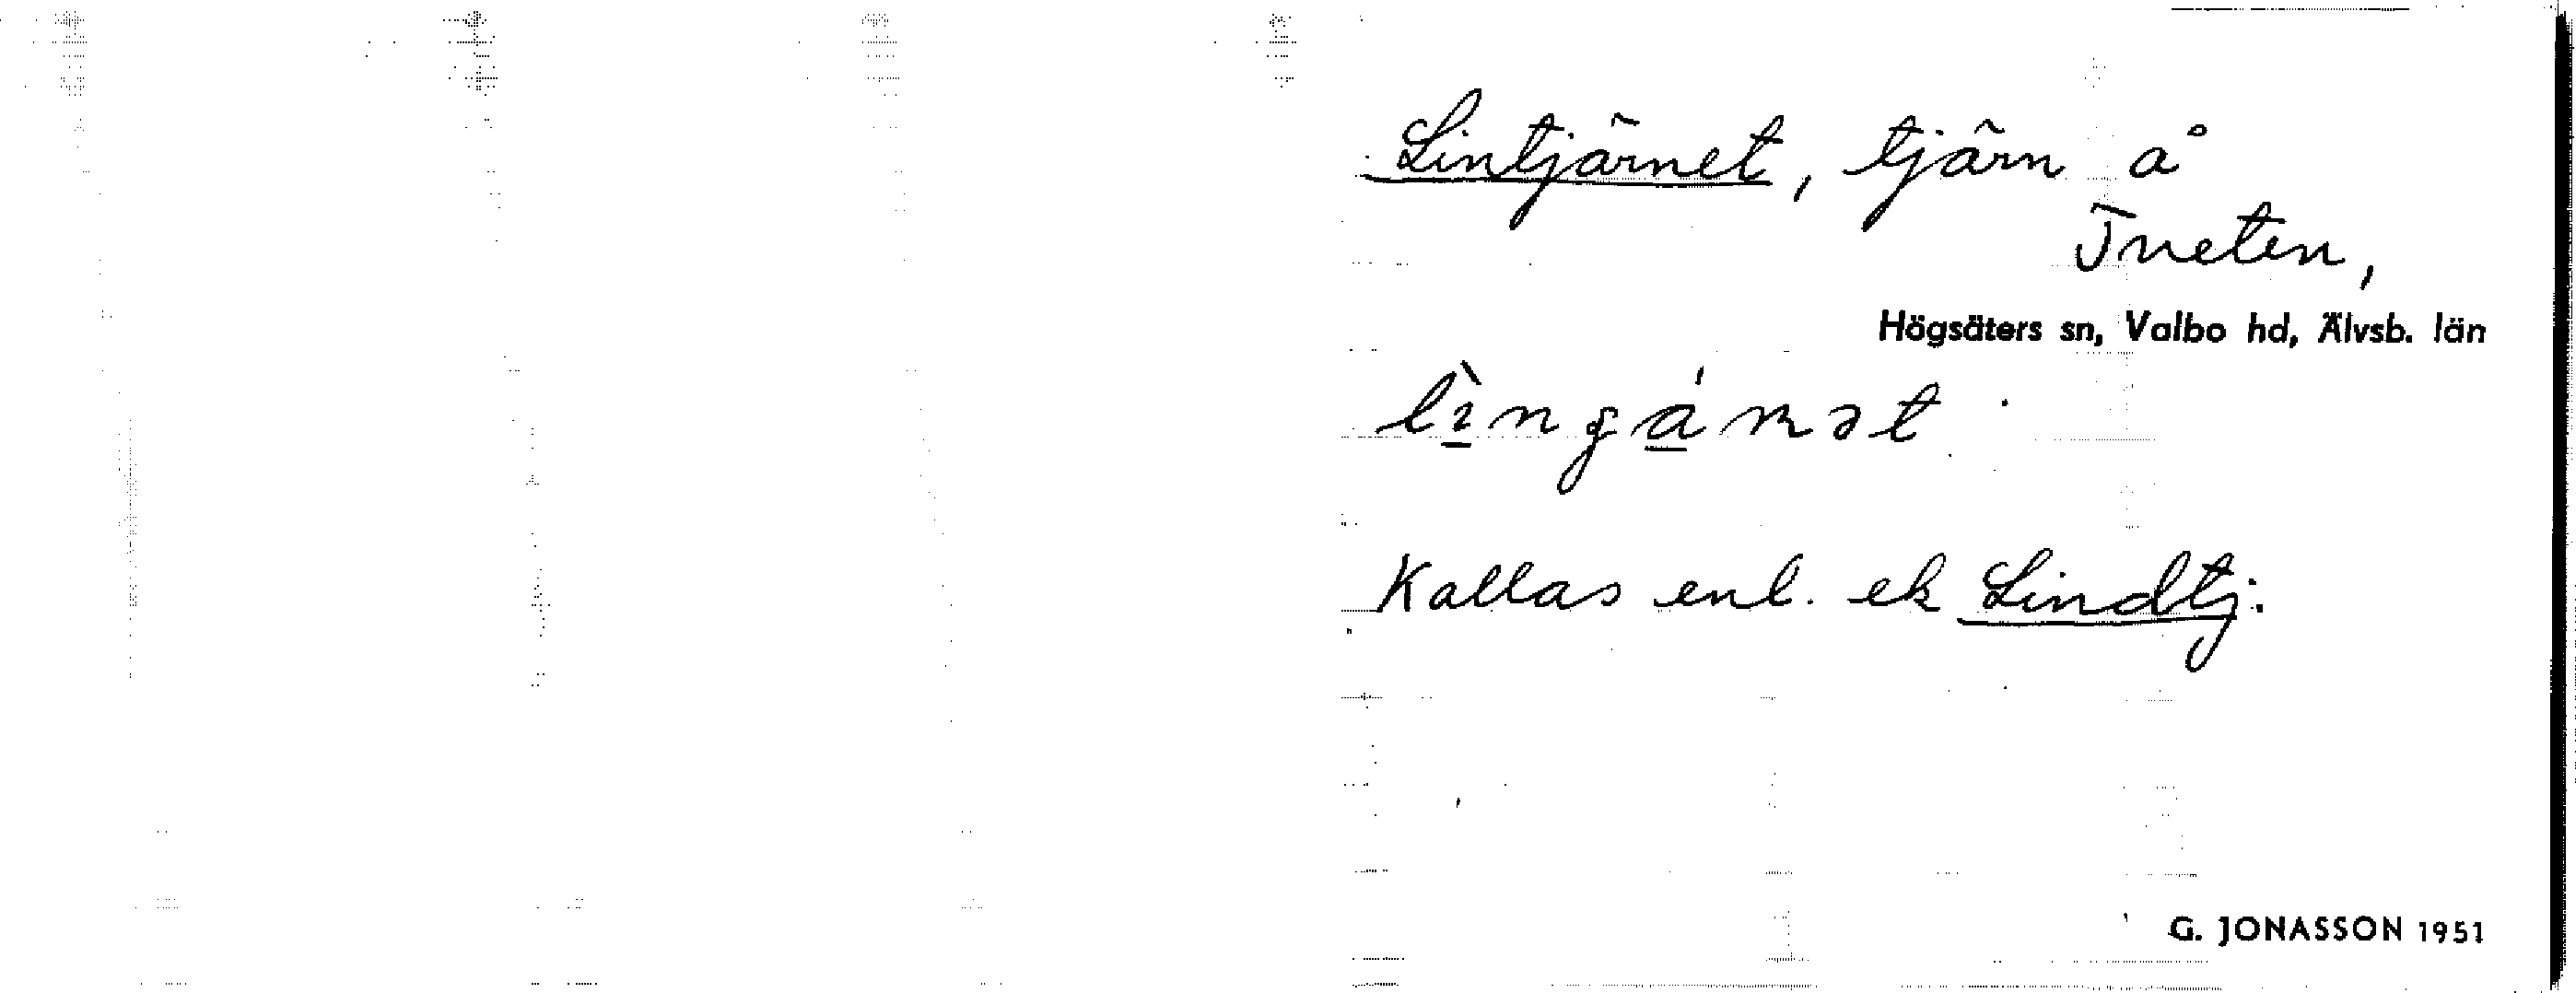 Lintjärnet, tjärn å
Tveten,
Högsäters sn, Valbo hd, Älvsb. län
Kallas enl. ek Lindtj.
G. JONASSON 1951